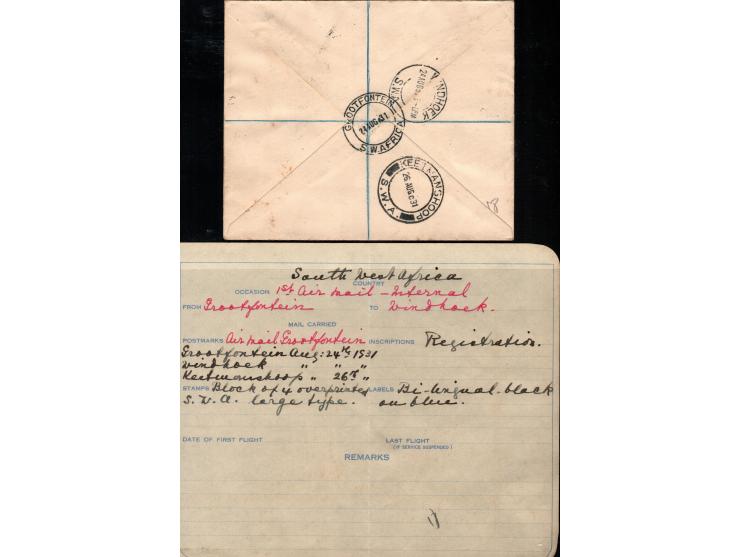 WINDHOEK
24 AUG
S.W.A
GROOTFONTEIN
24 AUG 31
S.W. AFRICA
KEETMANSHOOP
26 AUG 31
S.W.A.
18
South West Africa
COUNTRY
OCCASION 1st Air mail – Internal
FROM Grootfontein TO Windhoek.
MAIL CARRIED
POSTMARKS Air mail Grootfontein INSCRIPTIONS Registration.
Grootfontein Aug: 24th 1931
Windhoek " " "
Keetmanshoop " 26th "
STAMPS Block of 4 overprinted LABELS Bi-lingual-black
S.W.A. large type. on blue.
DATE OF FIRST FLIGHT LAST FLIGHT
(IF SERVICE SUSPENDED)
REMARKS